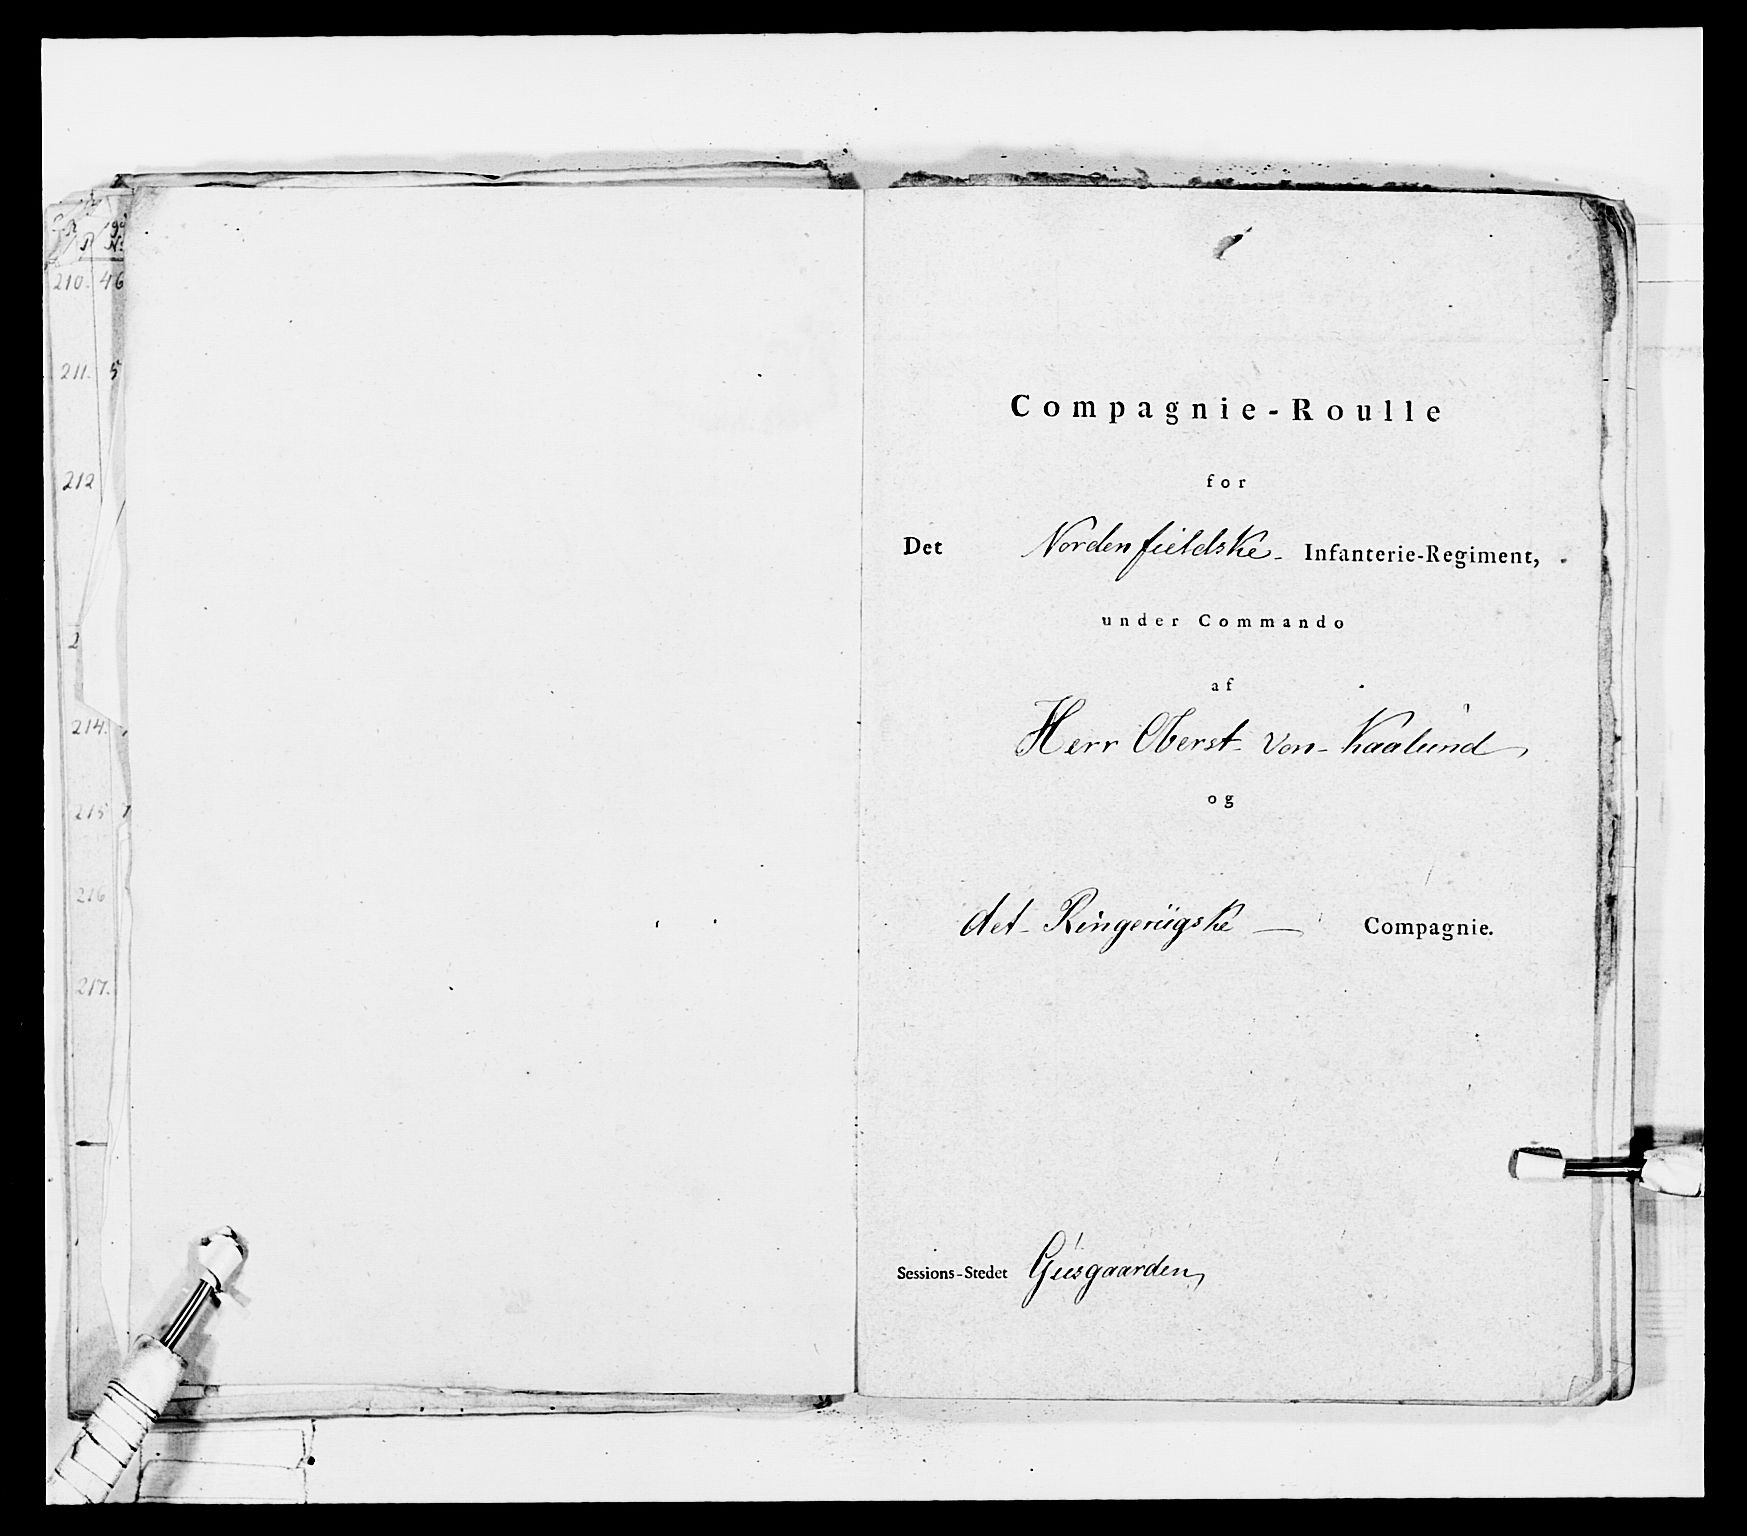 210. 46
211. 5
212
2
214.
215 7
216
217.
Compagnie-Roulle
for
Det Nordenfieldske Infanterie-Regiment,
under Commando
af
Herr Oberst von Kaalund,
og
det Ringeriigske Compagnie.
Sessions-Stedet Gusgaarden,